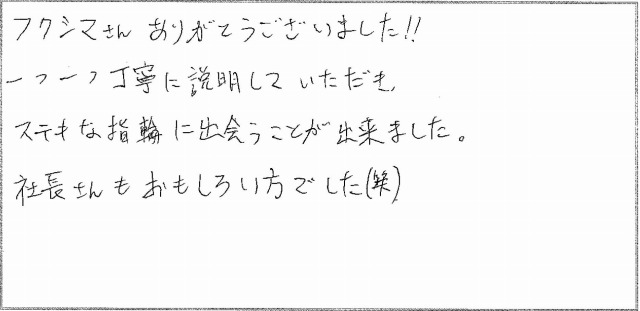 フクシマさん ありがとうございました!!
一つ一つ丁寧に説明していただき、
ステキな指輪に出会うことが出来ました。
社長さんもおもしろい方でした(笑)